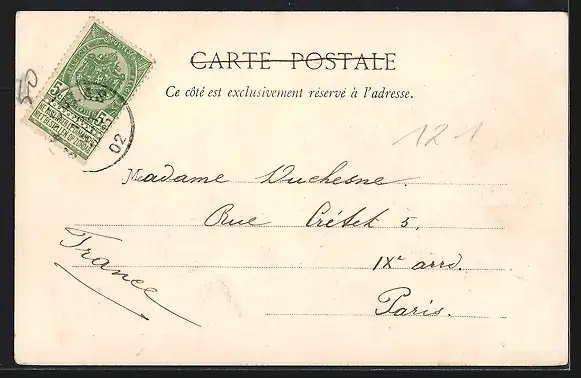 CARTE POSTALE
Ce côté est exclusivement réservé à l'adresse.
50
121
02
Madame Duchesne.
Rue Crétet 5.
IXe arrd.
Paris.
France